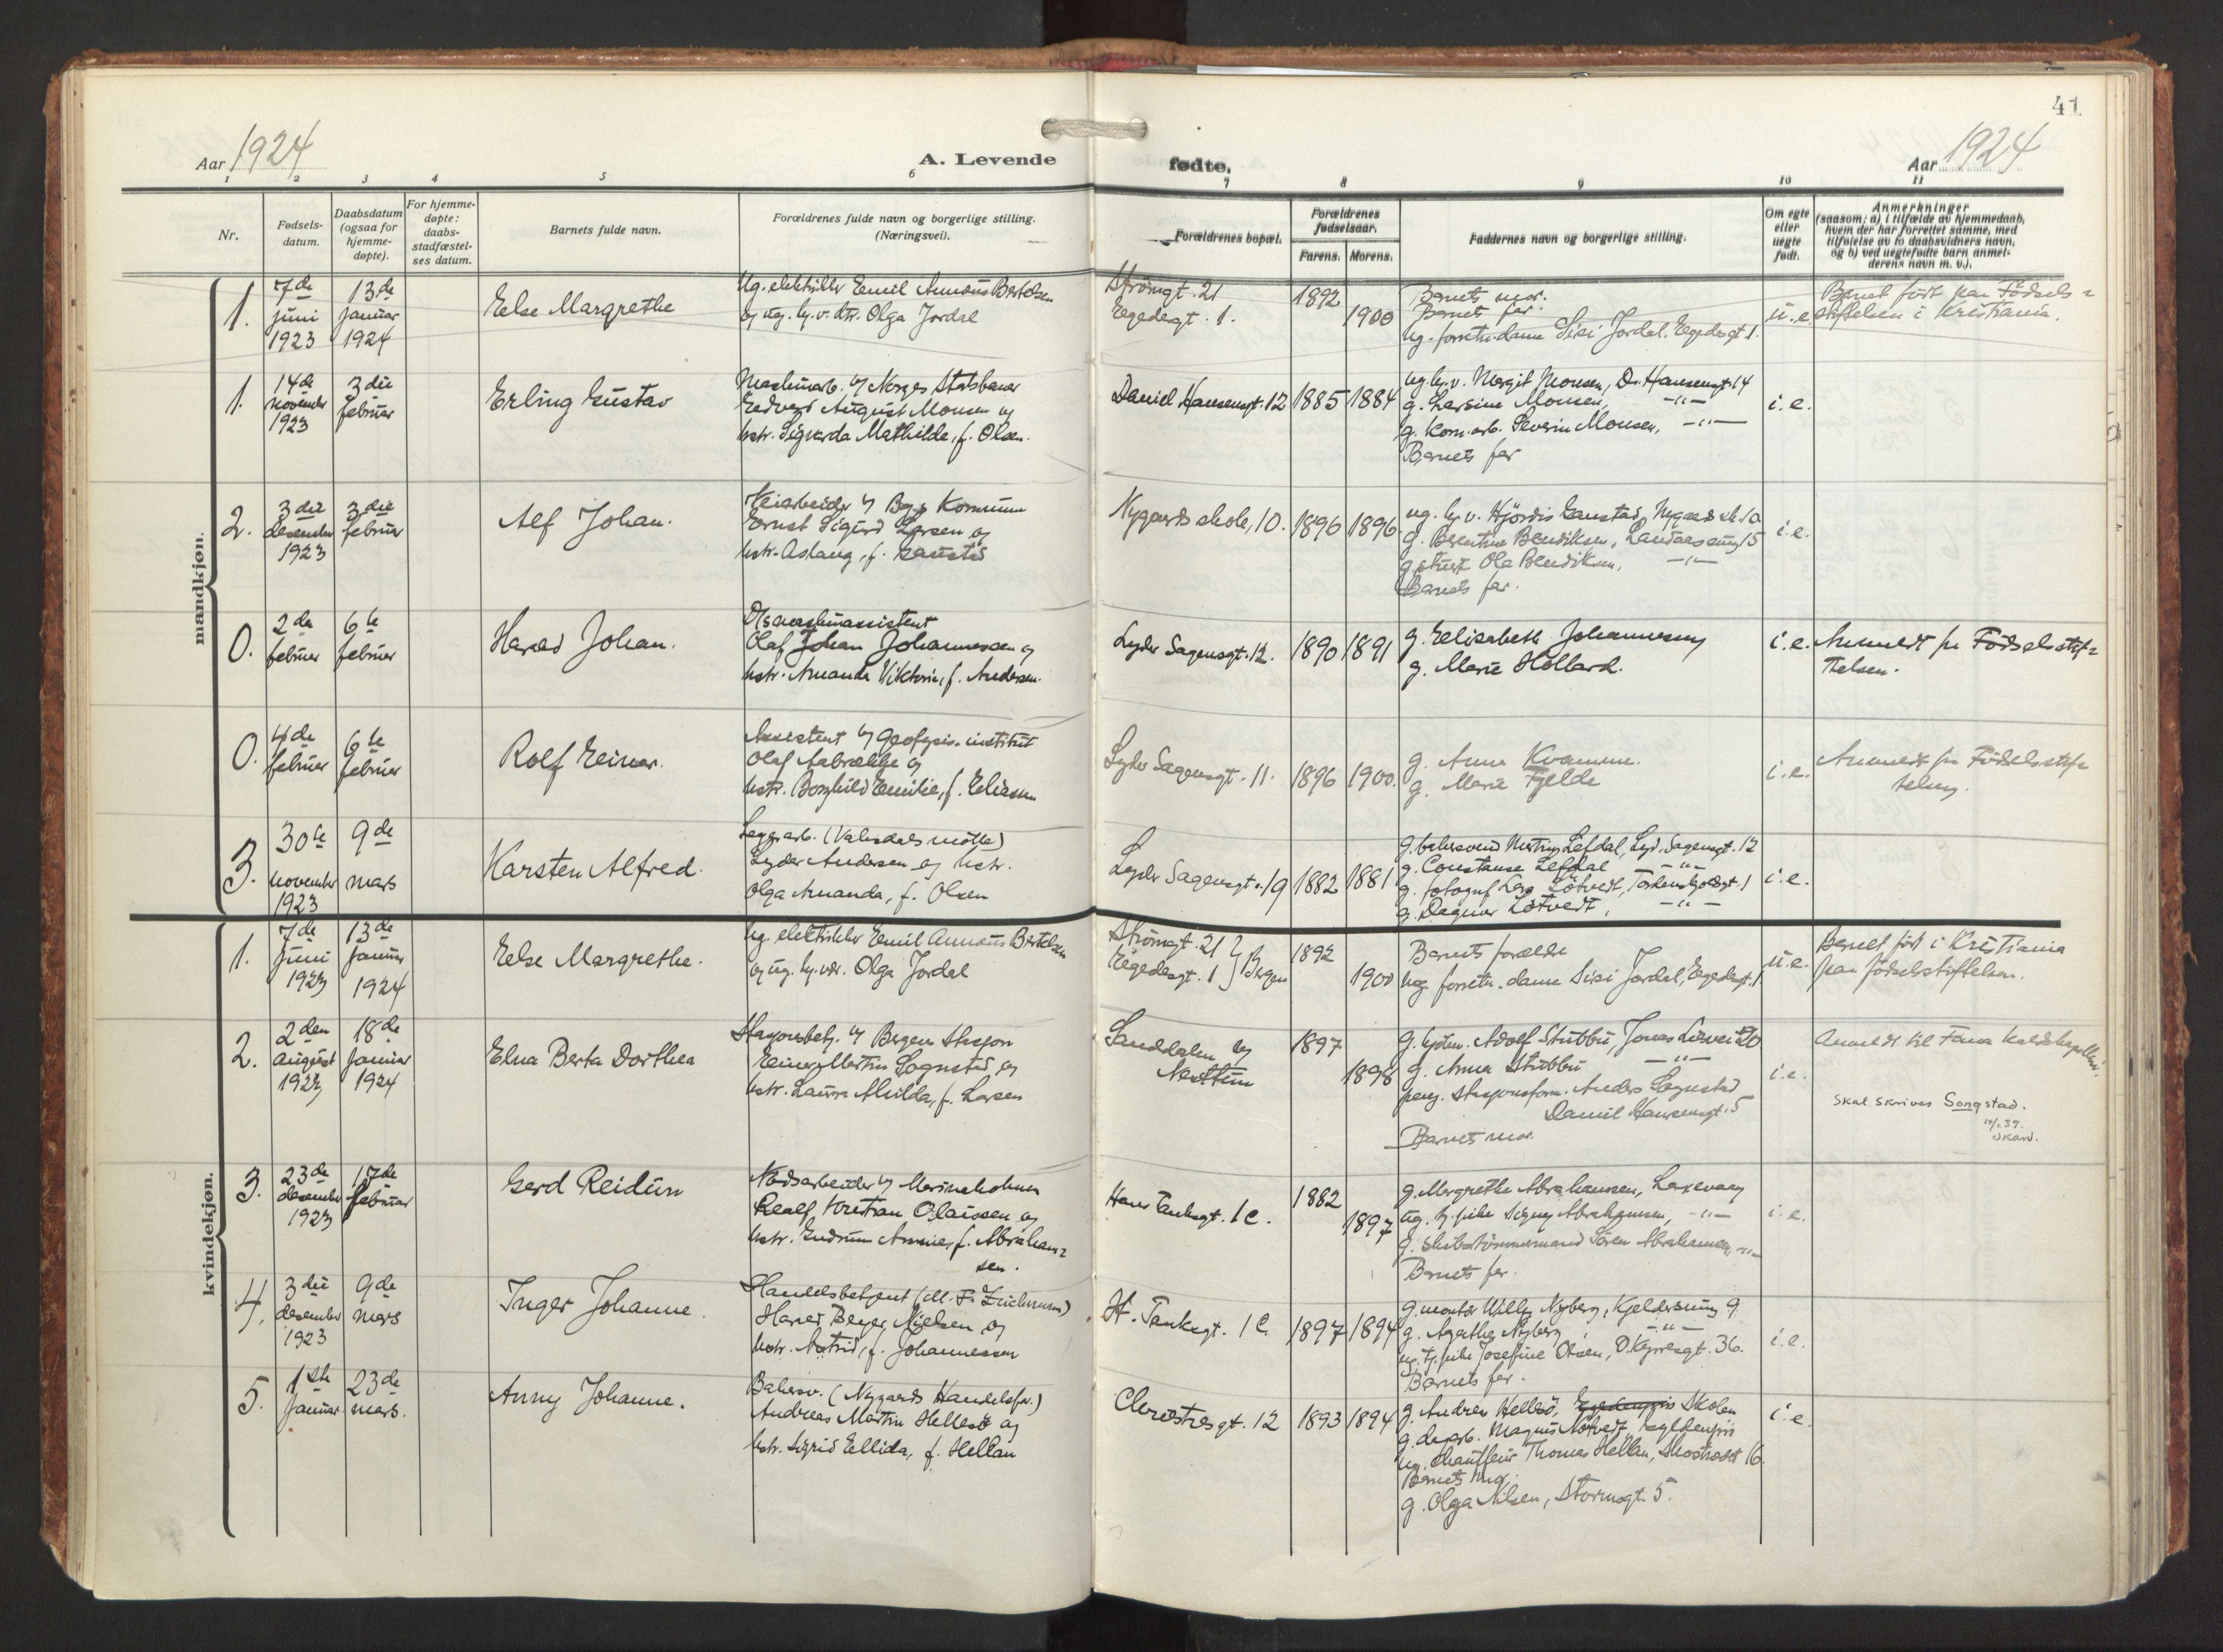 41
Aar 1924
A. Levende
fødte.
Aar 1924
1 2 3 4 5 6 7 8 9 10 11
Nr.
Fødsels-
datum.
Daabsdatum
(ogsaa for
hjemme-
døpte).
For hjemme-
døpte:
daabs-
stadfæstel-
ses datum.
Barnets fulde navn.
Forældrenes fulde navn og borgerlige stilling.
(Næringsvei).
Forældrenes bopæl.
Forældrenes
fødselsaar.
Farens. Morens.
Faddernes navn og borgerlige stilling.
Om egte
eller
uegte
født.
Anmerkninger
(saasom: a) i tilfælde av hjemmedaab,
hvem der har forrettet samme, med
tilføielse av to daabsvidners navn,
og b) ved uegtefødte barn anmel-
derens navn m. v.).
mandkjøn.
1.
7de
juni
1923
13de
januar
1924
Else Margrethe
Ug. elektriker Emil Bertelsen
og ug. Olga Jordal
Strömgt. 21
Egedesgt. 1.
1892
1900
Barnets mor.
Barnets far.
ug. forretn.dame Sisi Jordal. Egedesgt 1.
u.e.
Barnet födt paa Födsels=
stiftelsen i Kristiania.
1.
14de
november
1923
3die
februar
Erling Gustav
Maskinarb. v/ Norges Statsbaner
Edvard August Monsen og
hstr. Sigvarda Mathilde, f. Olsen.
Daniel Hansensgt. 12
1885 1884
ug. hj.v. Margit Monsen, D. Hansensgt 14
g. Larsine Monsen, -"-
g. kom.arb. Severin Monsen, -"-
Barnets far
i.e.
2.
3die
desember
1923
3die
februar
Alf Johan.
Veiarbeider v/ Bg.s Kommune
Ernst Sigurd Larsen og
hstr. Aslaug, f. Gaustad
Nygaards skole, 10.
1896 1896
ug. hj.v. Hjördis Gaustad, Nygaards sk. 10
g. Berentine Bendiksen, 15
g. Ola Bendiksen, -"-
Barnets far.
i.e.
0.
2den
februar
6te
februar
Harald Johan.
D/s maskinassistent
Olaf Johan Johannessen og
hstr. Amanda Viktoria, f. Andersen.
Lyder Sagensgt. 12.
1890 1891
g. Elisabeth Johannessen
g. Marie Hollard.
i.e.
Anmeldt fra Födselsstif=
telsen.
0.
4de
februar
6te
februar
Rolf Einar.
Assistent v/ geofysis. institut
Olaf Aabrekke og
hstr. Borghild Emilie, f. Eliassen
Lyder Sagensgt. 11.
1896 1900.
g. Anna Kvamme.
g. Marie Fjelde
i.e.
Anmeldt fra Födselsstif=
telsen.
3.
30te
november
1923
9de
mars
Karsten Alfred.
Lagerarb. (Vaksdals mölle)
Lyder Andersen og hstr.
Olga Amanda, f. Olsen
Lyder Sagensgt. 19
1882 1881
g. bakersvend Lefdal, Lyd. Sagensgt. 12
g. Constanse Lefdal -"-
g. fotograf Lars Lötvedt, Torkensgt. 1
g. Dagmar Lötvedt, -"-
i.e.
kvindekjøn.
1.
7de
juni
1923
13de
januar
1924
Else Margrethe.
Ug. elektriker Emil Bertelsen
og ug. Olga Jordal
Strömgt. 21
Egedesgt. 1 } Bergen
1892
1900
Barnets forældre
ug. forretn.dame Sisi Jordal, Egedesgt. 1.
u.e.
Barnet födt i Kristiania
paa födselsstiftelsen.
2.
2den
august
1923
18de
januar
1924
Elna Berta Dorthea
Stasjonsbetj. v/ Bergen Stasjon
Einar Martin Sognstad og
hstr. Laura Alvilda, f. Larsen
Sanddalen v/
Nesttun
1897
1898
g. Adolf Stubbu, Jonas Liesvei 20
g. Anna Stubbu -"-
pens. Stasjonsform. Anders Sognstad
Daniel Hansensgt. 5
Barnets mor.
i.e.
Anmeldt til Fana
Skal skrives Songstad.
3.
23de
desember
1923
17de
februar
Gerd Reidun
Nødsarbeider v/ Marineholmen
Realf Kristian Olaissen og
hstr. Gudrun Annie, f. Abraham=
sen.
Hans Tanksgt. 1c.
1882
1897
g. Margrethe Abrahamsen, Laxevaag
ug. t.pike Signy Abrahamsen, -"-
g. skibstömmermand Sören Abrahamsen, -"-
Barnets far.
i.e.
4.
3die
desember
1923
9de
mars
Inger Johanne.
Handelsbetjent
Harald Beyer Nielsen og
hstr. Astrid, f. Johannessen
H. Tanksgt. 1c.
1897 1894
g. montör Willy Nyberg, 9
g. Agathe Nyberg, -"-
ug. t.pike Josefine Olsen, D. Kyrresgt. 36.
Barnets far.
i.e.
5.
1ste
januar
23de
mars.
Anny Johanne.
Bakersv. (Nygaards Handelsfor.)
Andreas Martin Hellesö og
hstr. Sigrid Ellida, f. Hellan
Claus
12
1893 1894
g. Andrea Hellesö, Skolen
g. Magnus Nötvedt,
ug. Chauffeur Thomas Hellan, 16.
Barnets mor.
g. Olga Nilsen, Stormsgt. 5.
i.e.